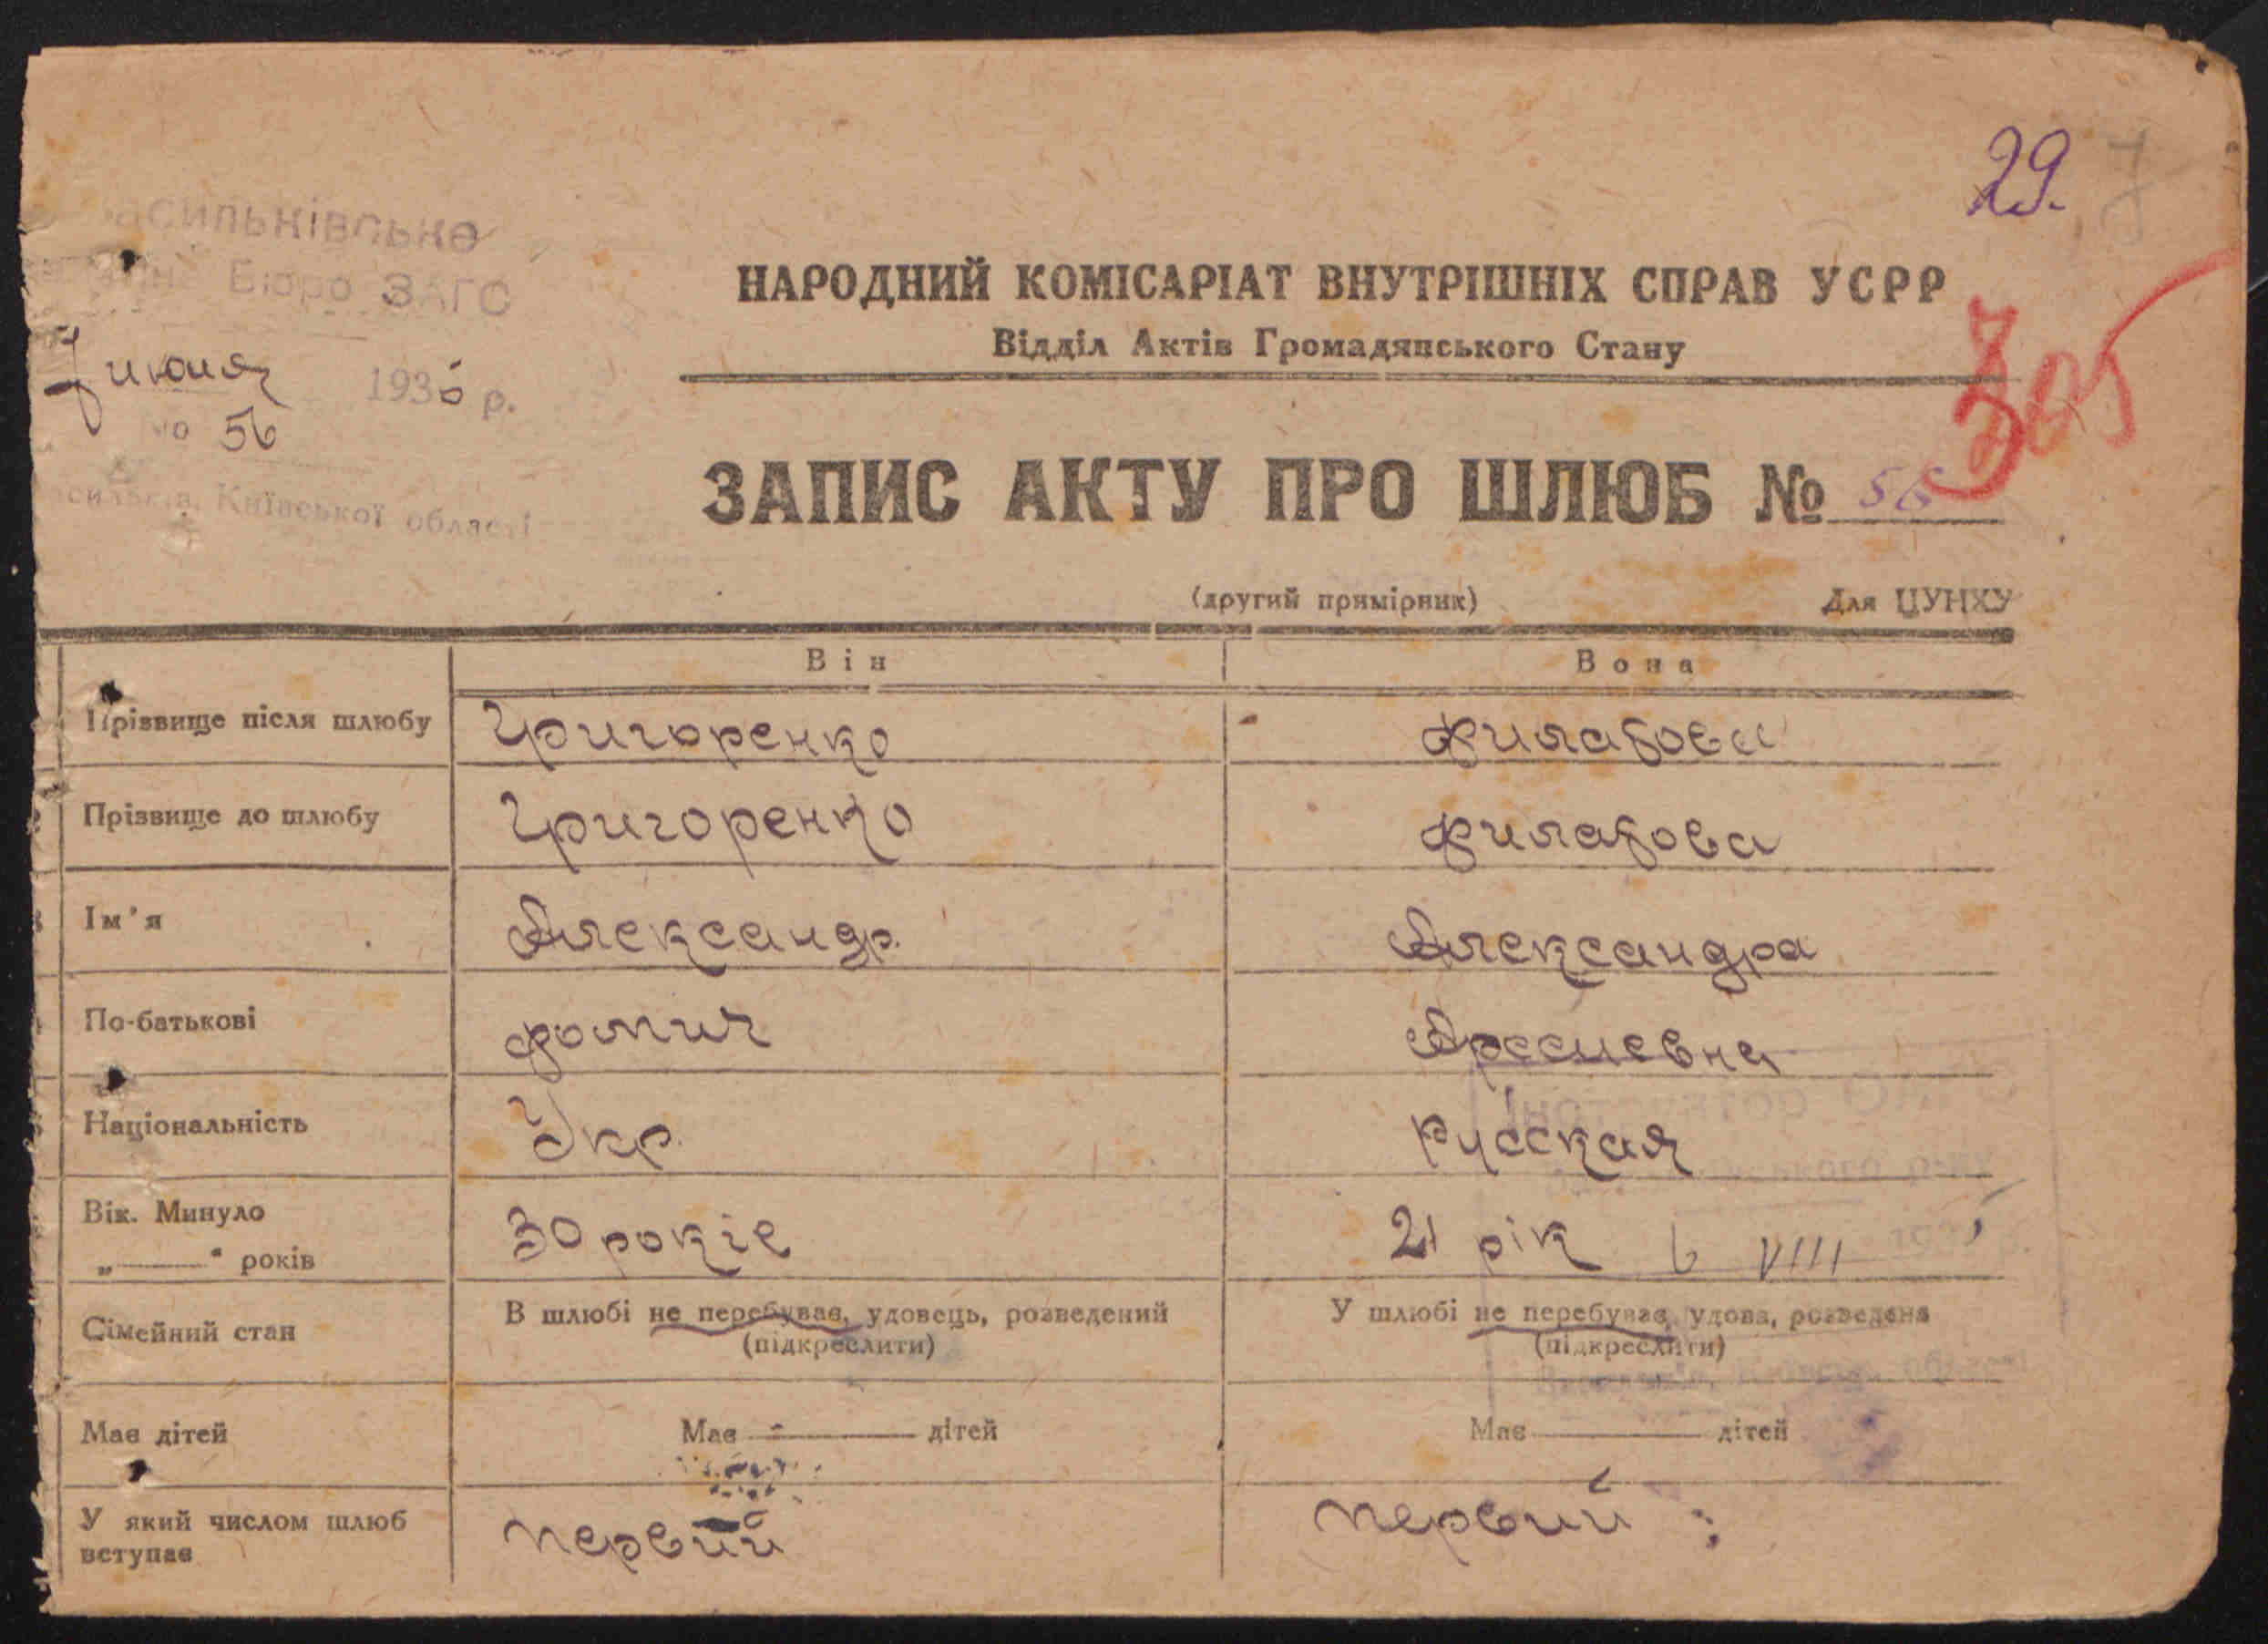 29.
Бюро ЗАГС
7 июня 1935 р.
№ 56
Київської області
НАРОДНИЙ КОМІСАРІАТ ВНУТРІШНІХ СПРАВ УСРР
Відділ Актів Громадянського Стану
ЗАПИС АКТУ ПРО ШЛЮБ № 56
(другий примірник) Для ЦУНХУ
Він Вона
Прізвище після шлюбу Григоренко Филатова
Прізвище до шлюбу Григоренко Филатова
Ім'я Александр. Александра
По-батькові Фомич
Національність Укр. Русская
Вік. Минуло
„ “ років 30 років 21 рік 6 VIII
Сімейний стан В шлюбі не перебуває, удовець, розведений У шлюбі не перебуває, удова, розведена
(підкреслити) (підкреслити)
Має дітей Має - дітей Має дітей
У який числом шлюб
вступає первий первий